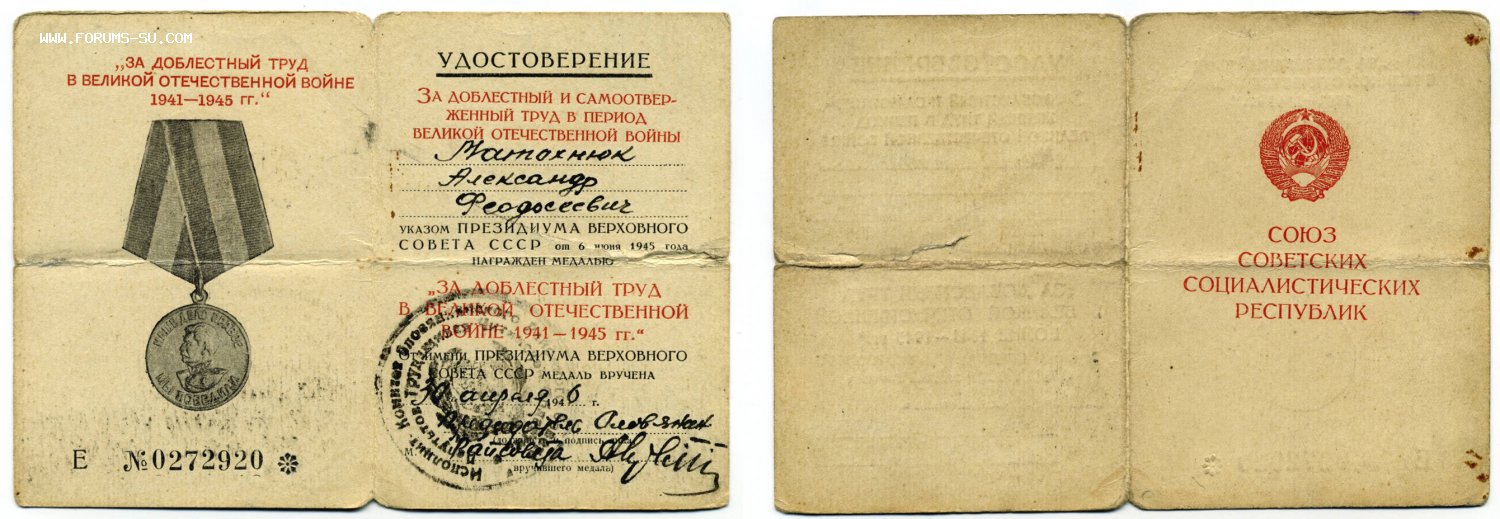 www.forums-su.com
„ЗА ДОБЛЕСТНЫЙ ТРУД
В ВЕЛИКОЙ ОТЕЧЕСТВЕННОЙ ВОЙНЕ
1941—1945 гг.“
НАШЕ ДЕЛО ПРАВОЕ
МЫ ПОБЕДИЛИ
Е №0272920
УДОСТОВЕРЕНИЕ
ЗА ДОБЛЕСТНЫЙ И САМООТВЕР-
ЖЕННЫЙ ТРУД В ПЕРИОД
ВЕЛИКОЙ ОТЕЧЕСТВЕННОЙ ВОЙНЫ
Матохнюк
Александр
Феодосеевич
УКАЗОМ ПРЕЗИДИУМА ВЕРХОВНОГО
СОВЕТА СССР от 6 июня 1945 года
НАГРАЖДЕН МЕДАЛЬЮ
„ЗА ДОБЛЕСТНЫЙ ТРУД
В ВЕЛИКОЙ ОТЕЧЕСТВЕННОЙ
ВОЙНЕ 1941—1945 гг.“
ОТ ИМЕНИ ПРЕЗИДИУМА ВЕРХОВНОГО
СОВЕТА СССР МЕДАЛЬ ВРУЧЕНА
30 апреля 1946 г.
председатель Оловяннин
(должность и подпись лица,
М. Райсовета
вручившего медаль)
Исполнит Комитет Оловяннинского
ДЕПУТАТОВ ТРУДЯЩИХСЯ
СОЮЗ
СОВЕТСКИХ
СОЦИАЛИСТИЧЕСКИХ
РЕСПУБЛИК